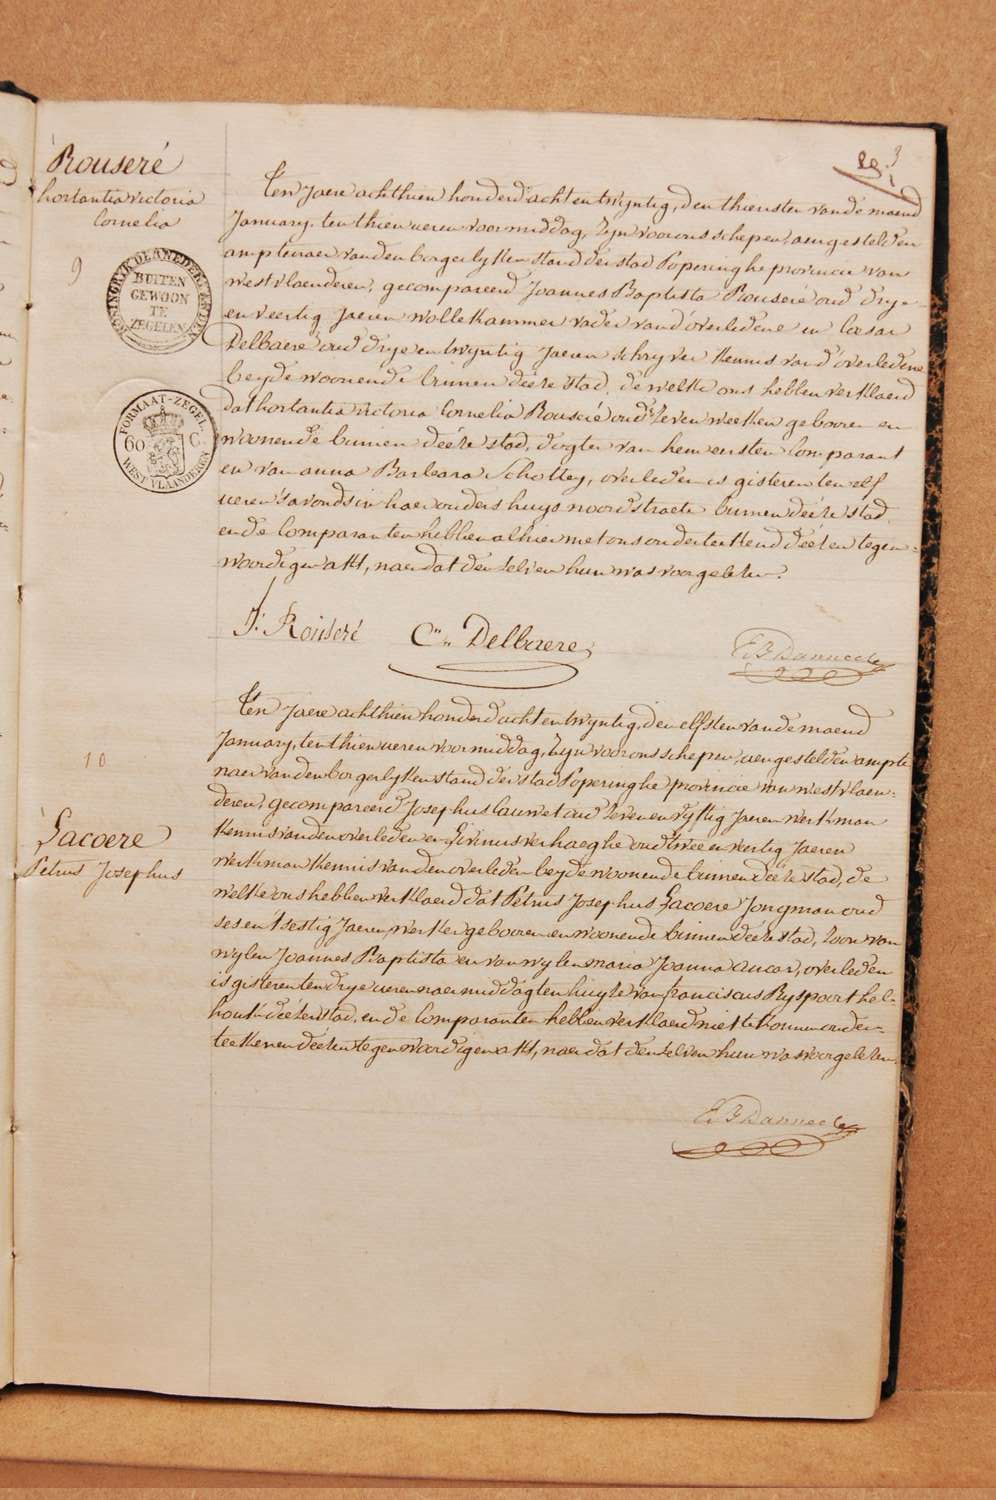 3
Rouseré
hortantia victoria
Cornelia
9
KONINGRYK DER NEDERLANDEN
BUITEN
GEWOON
TE
ZEGELEN
FORMAAT-ZEGEL
60 C.
WEST VLAANDEREN
Ten Jaere achthien honderd acht en twyntig, den thiensten van de maend
January, ten thien ueren voormiddag, Zyn voor ons schepen, aengestelden
amptenaer van den borgerlyken stand der stad Poperinghe provincie van
westvlaenderen, gecompareerd Joannes Baptista Rouseré oud dry-
en veertig Jaeren wollekammer vader van d'overledene en Cæsar
Delbaere oud drye en twyntig Jaeren schryver kennis van d'overledene
beyde woonende binnen deéze stad, de welke ons hebben verklaerd
dat hortantia victoria Cornelia Rouseré oud zeven weeken gebooren en
woonende binnen deéze stad, dogter van hem eersten Comparant
en van anna Barbara Schottey, overleden is gisteren ten elf
ueren s'avonds in haer ouders huys noordstraete binnen deéze stad
en de Comparanten hebben alhier met ons onderteekend deézen tegen-
woordigen akt, naer dat den zelven hun was voorgelezen.
J. Rouseré C. Delbaere
10
Lacoere
Petrus Josephus
Ten Jaere achthien honderd acht en twyntig, den elfsten van de maend
January, ten thien ueren voormiddag, Zyn voor ons schepen, aengestelden ampte
naer van den borgerlyken stand der stad Poperinghe provincie van westvlaen-
deren, gecompareerd Josephus lauwet oud zeven en vyftig Jaeren werkman
kennis van den overleden en Livinus verhaeghe oud twee en veertig Jaeren
werkman kennis van den overleden beyde woonende binnen deéze stad, de
welke ons hebben verklaerd dat Petrus Josephus Lacoere Jongman oud
ses en t'sestig Jaeren, werker gebooren en woonende binnen deéze stad, zoon van
wylen Joannes Baptista en van wylen maria Joanna aucar, overleden
is gisteren ten drye ueren naermiddag ten huyze van franciscus Ryspoort hel-
hout deézer stad, en de Comparanten hebben verklaerd niet te konnen onder-
teekenen deézen tegenwoordigen akt, naer dat den zelven hun was voorgelezen.